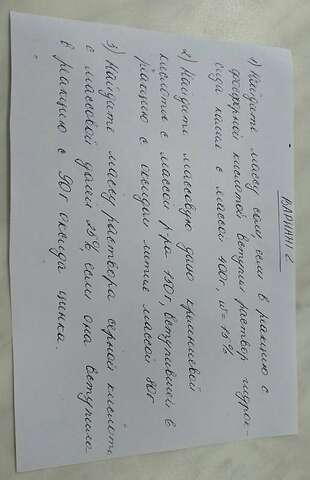 ВАРИАНТ 2
1) Найдите массу соли если в реакцию с
фосфорной кислотой вступил раствор гидрок-
сида калия с массой 400г, w = 15%
2) Найдите массовую долю кремниевой
кислоты с массой р-ра 190г, вступившей в
реакцию с оксидом лития массой 80г
3) Найдите массу раствора серной кислоты
с массовой долей 25%, если она вступила
в реакцию с 90г оксида цинка.